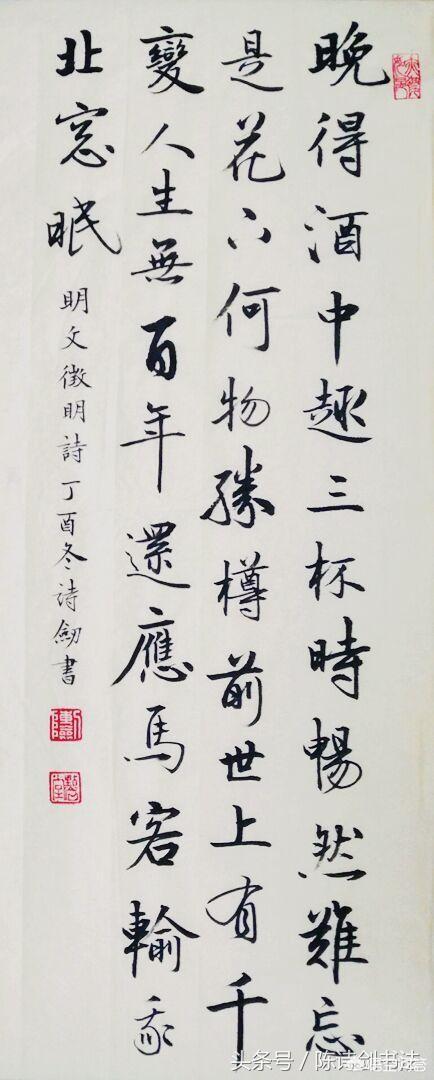 晚得酒中趣三杯時暢然難忘
是花下何物勝樽前世上有千
變人生無百年還應馬客輸我
北窓眠
明文徵明詩丁酉冬詩劍書
头条号 / 陈诗剑书法